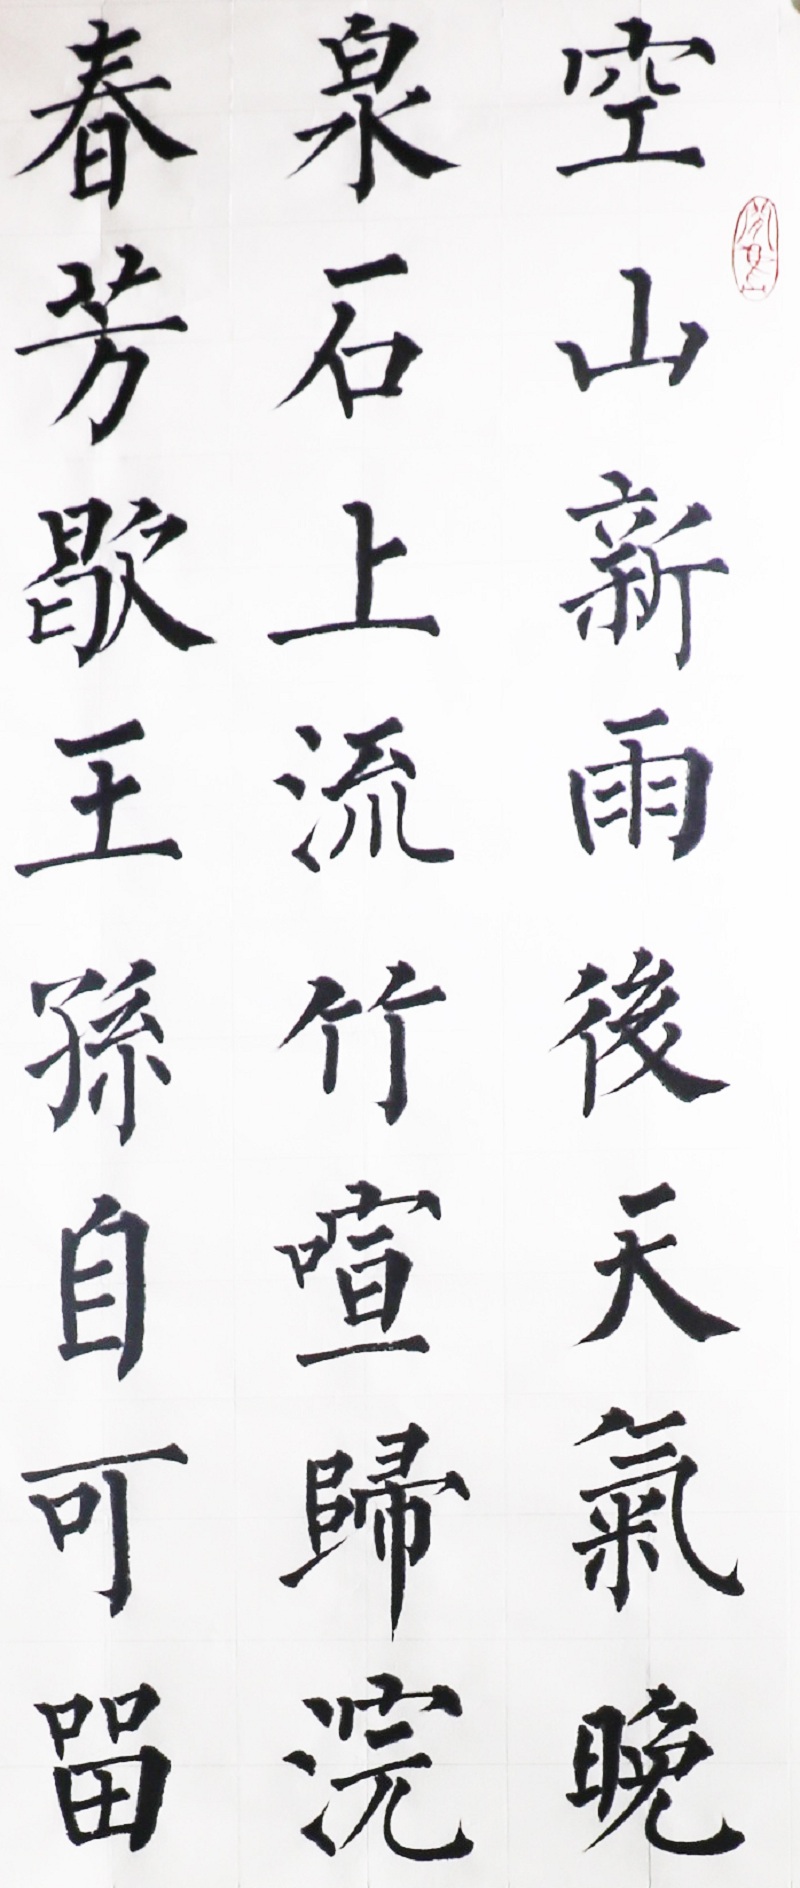 空山新雨後天氣晚
泉石上流竹喧歸浣
春芳歇王孫自可留